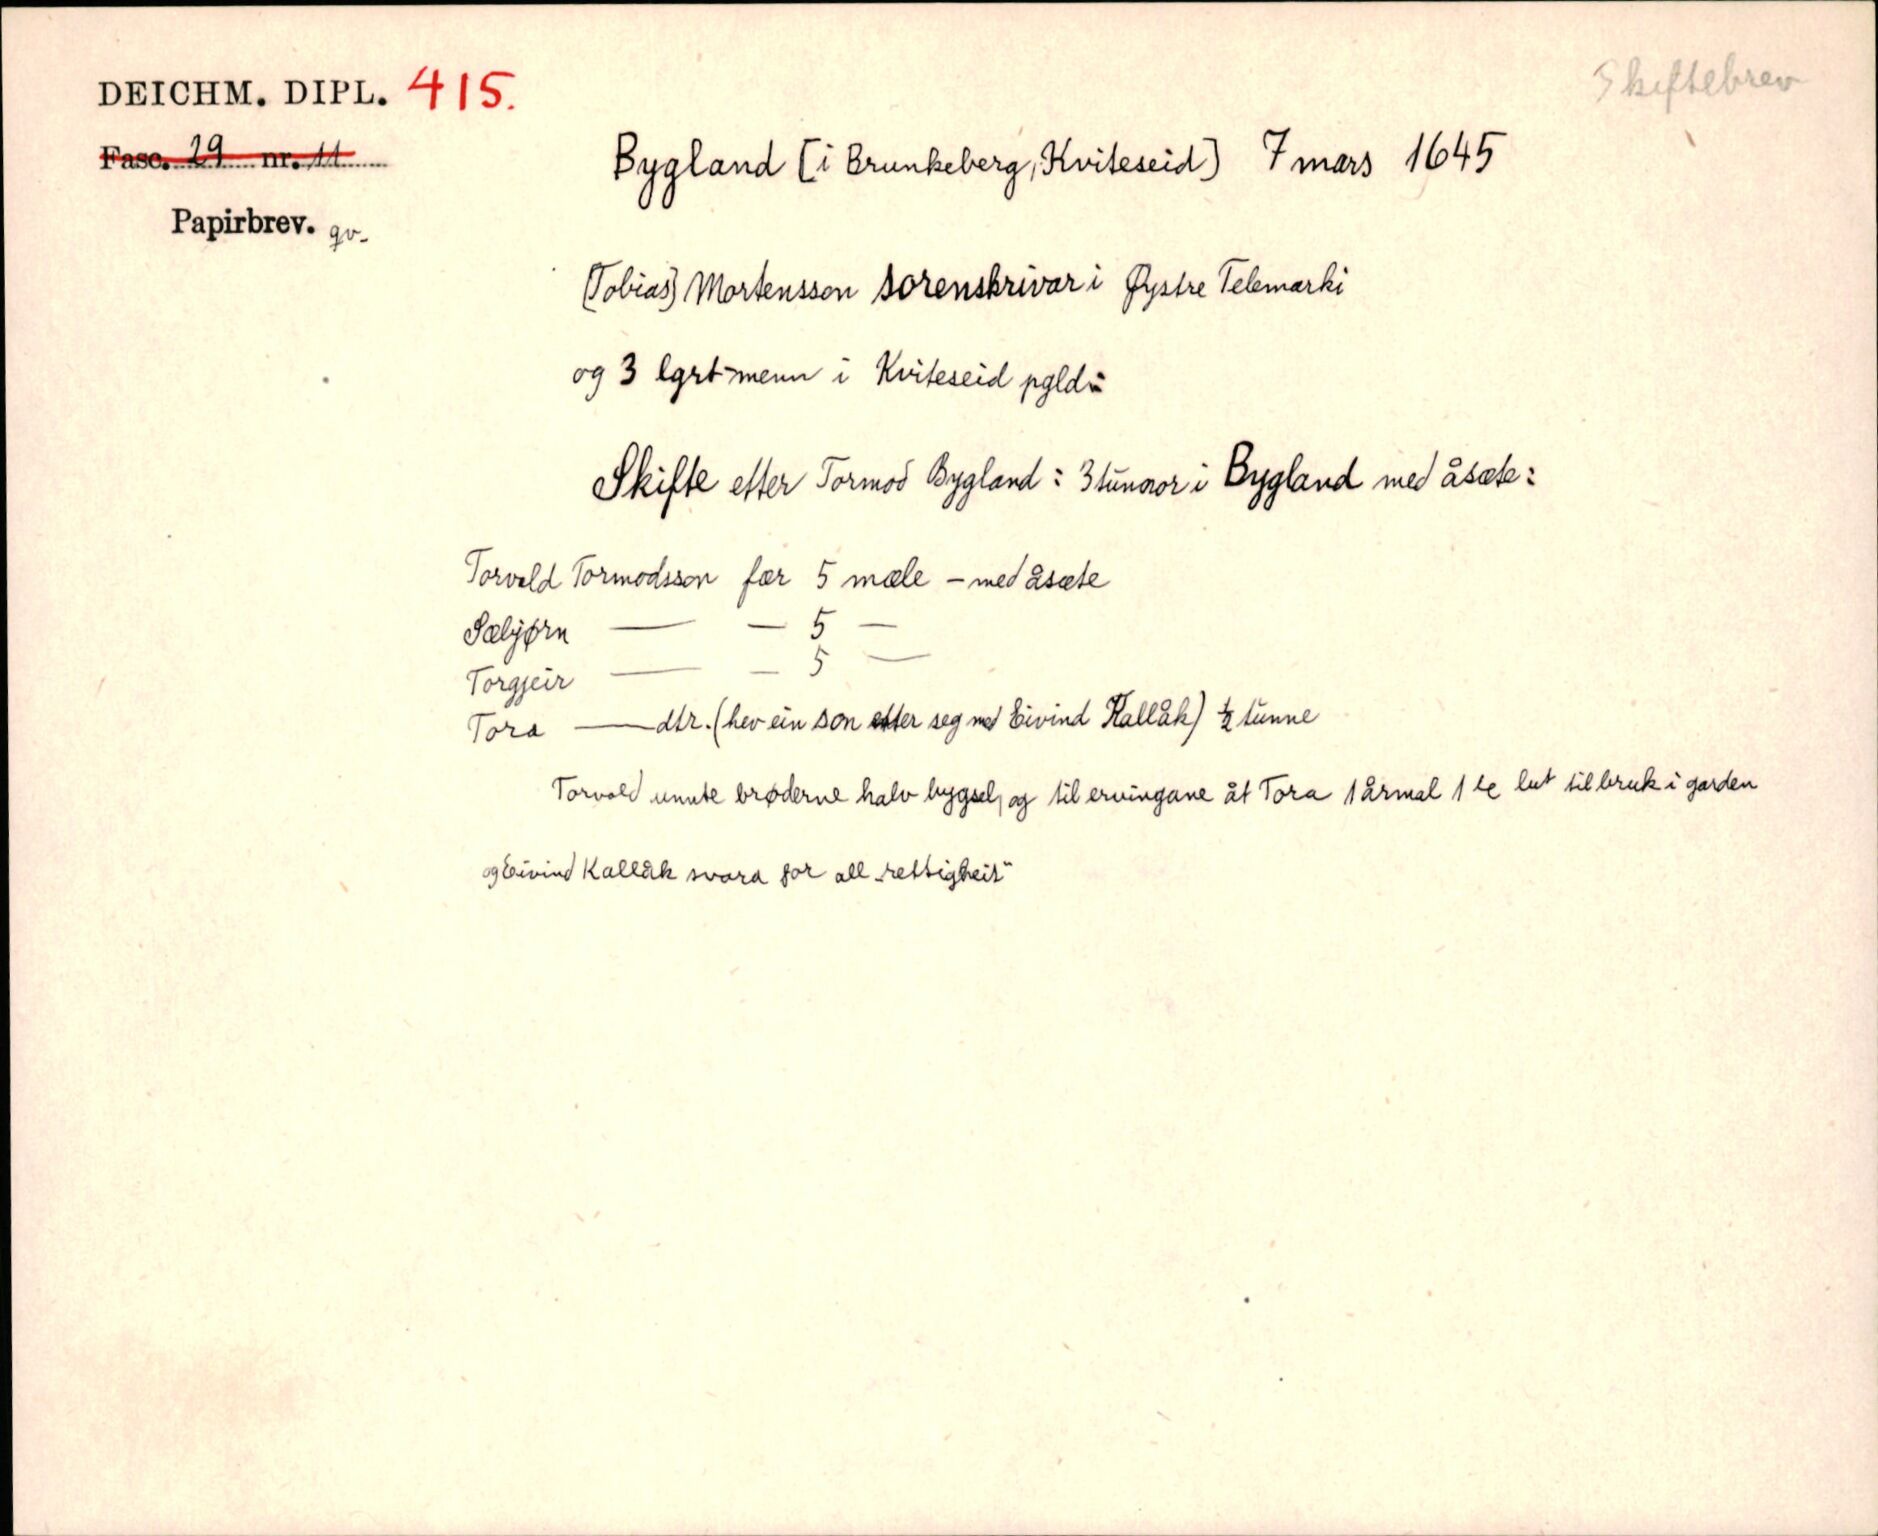 DEICHM. DIPL. 415.
Skiftebrev
Fasc. 29 nr. 11
Bygland [i Brunkeberg, Kviteseid] 7 mars 1645
Papirbrev. qv.
[Tobias] Mortensson sorenskrivar i Øystre Telemarki
og 3 lgrt-menn i Kviteseid pgld:
Skifte etter Tormod Bygland: 3 tunnor i Bygland med åsæte:
Torvald Tormodsson fær 5 mæle - med åsæte
Sæbjørn — — 5 —
Torgjeir — — 5 —
Tora — dtr. (hev ein son etter seg med Eivind Kallåk) ½ tunne
Torvald unnte brøderne halv bygsel, og til ervingane åt Tora 1 årmal 1 le lut til bruk i garden
og Eivind Kallåk svara for all "rettigheit"